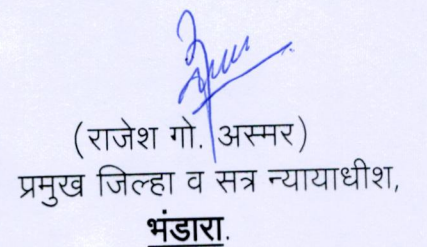 (राजेश गो. अस्मर)
प्रमुख जिल्हा व सत्र न्यायाधीश,
भंडारा.